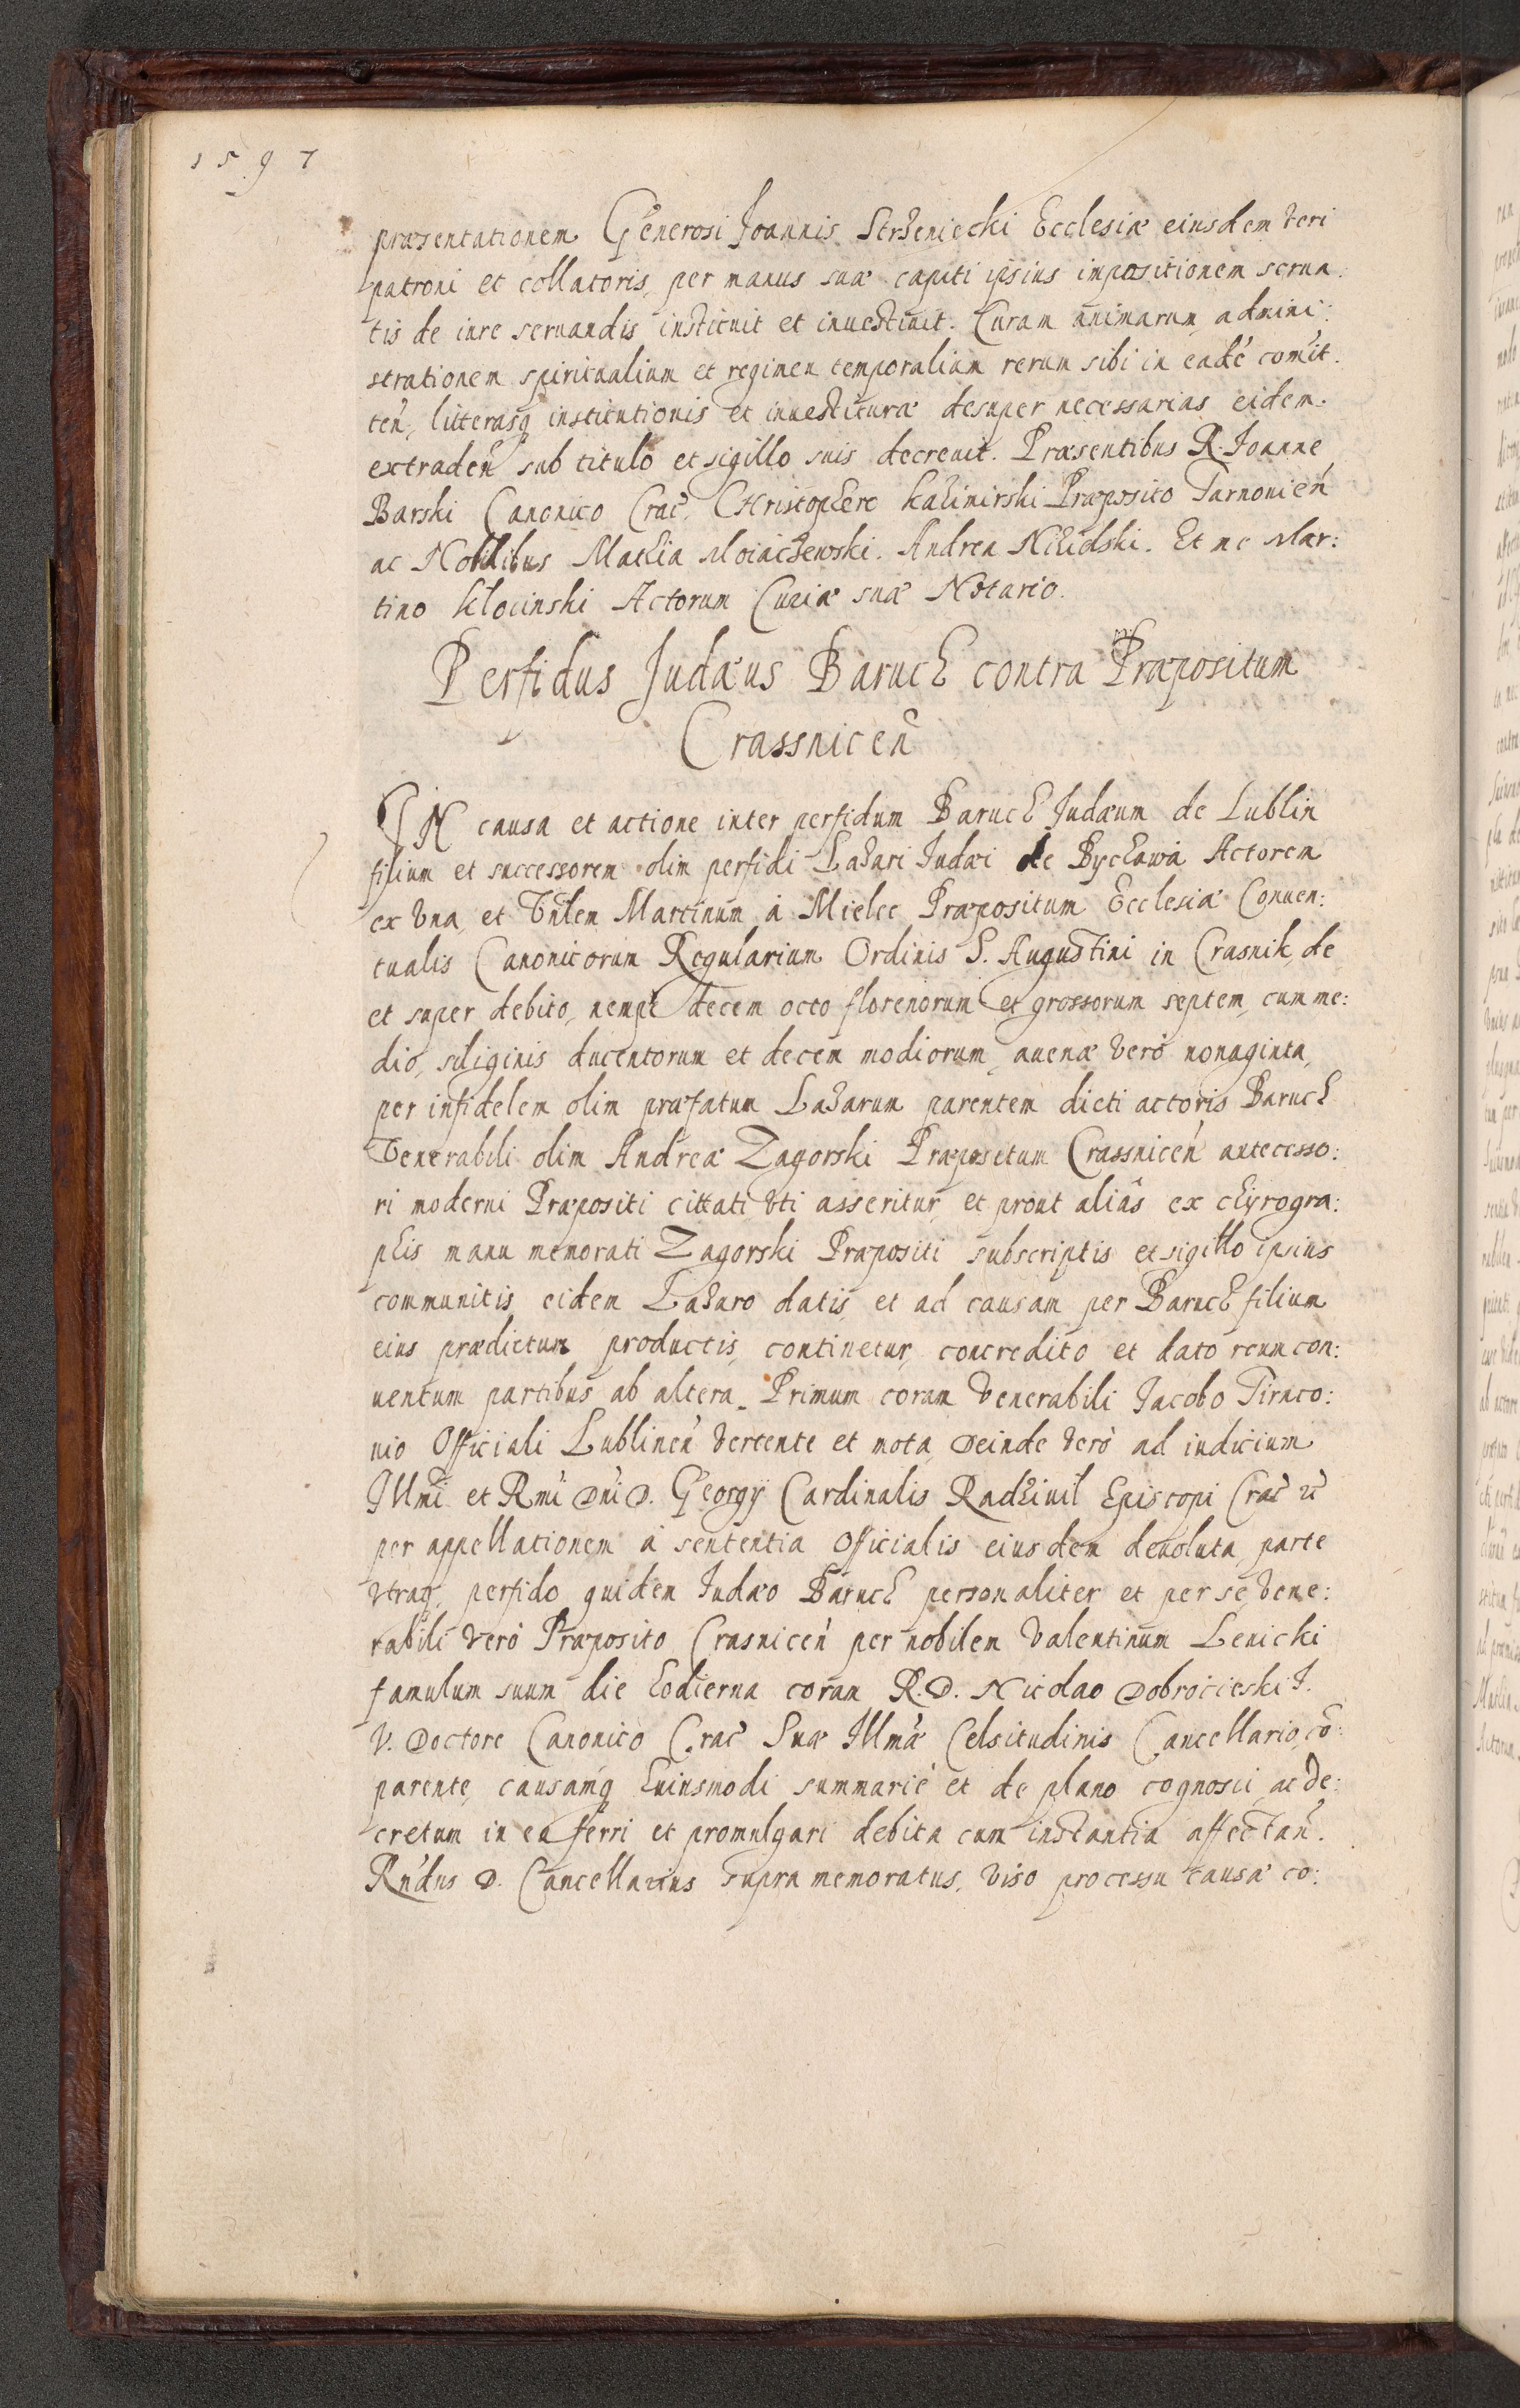 1597
præsentationem Generosi Joannis Strzeniecki Ecclesiæ eiusdem veri
patroni et collatoris, per manus suæ capiti ipsius impositionem serua:
tis de iure seruandis instituit et inuestiuit. Curam animarum, admini:
strationem spiritualium et regimen temporalium rerum sibi in eadē com̄it:
teñ, litterasq institutionis et inuestituræ desuper necessarias eidem:
extradeñ sub titulo et sigillo suis decreuit. Præsentibus R. Joanne
Barski Canonico Crac̄, Christophero Kazimirski Præposito Tarnouieñ
ac Nobilibus Mathia Moiaczewski. Andrea Et me Mar:
tino Klocinski Actorum Curiæ suæ Notario.
Perfidus Judæus Baruch contra Præpositum
Crassniceñ
IN causa et actione inter perfidum Baruch Judæum de Lublin
filium et successorem olim perfidi Lazari Judæi de Bychawa Actorem
ex vna, et Vñlem Martinum à Mielec Præpositum Ecclesiæ Conuen:
tualis Canonicorum Regularium Ordinis S. Augustini in Crasnik, de
et super debito, nempe decem octo florenorum et grossorum septem, cum me:
dio, siliginis ducentorum et decem modiorum, auenæ verò nonaginta,
per infidelem olim præfatum Lazarum parentem dicti actoris Baruch
Venerabili olim Andreæ Zagorski Præpositum Crassniceñ antecesso:
ri moderni Præpositi cittati vti asseritur, et prout aliâs ex chyrogra:
phis manu memorati Zagorski Præpositi subscriptis et sigillo ipsius
communitis eidem Lazaro datis, et ad causam per Baruch filium
eius prædictum productis, continetur, concredito et dato reum con:
uentum partibus ab altera. Primum coram Venerabili Jacobo Tirnco:
nio Officiali Lublineñ vertente et mota, deinde verò ad iudicium
Illm̄i et Rm̄i Dn̄i D. Georgÿ Cardinalis Radziuil Episcopi Crac̄ ꝛc̄
per appellationem à sententia Officialis eiusdem deuoluta, parte
vtraq, perfido quidem Judæo Baruch personaliter et per se, Vene:
rabili verò Præposito Crasniceñ per nobilem Valentinum Lenicki
famulum suum die hodierna coram R. D. Nicolao Dobrocieski J.
V. Doctore Canonico Crac̄ Suæ Illm̄æ Celsitudinis Cancellario, cō:
parente, causamq huiusmodi summariè et de plano cognosci, ac de:
cretum in ea ferri et promulgari debita cum instantia affectañ.
Rñdus D. Cancellarius supra memoratus, viso processu causæ co: